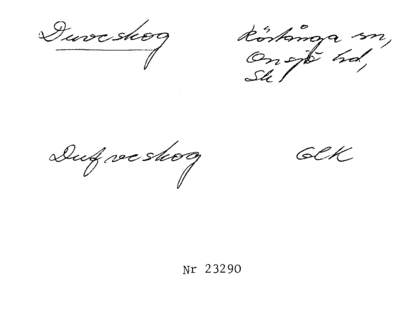 Duveskog Röstånga sn,
Onsjö hd,
Sk
Dufveskog GEK
Nr 23290